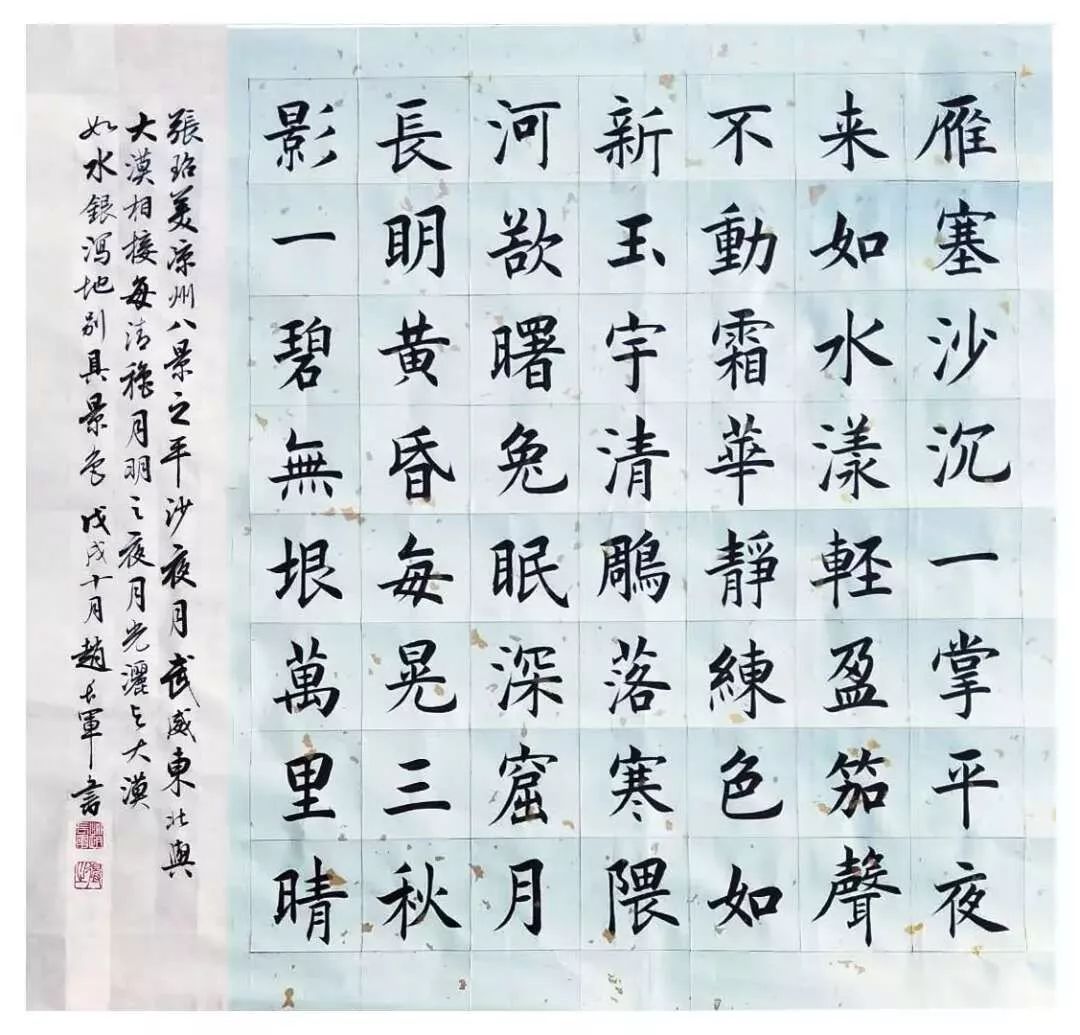 雁塞沙沉一掌平夜
来如水漾輕盈笳聲
不動霜華靜練色如
新玉宇清鵰落寒隈
河欲曙兔眠深窟月
長明黃昏每晃三秋
影一碧無垠萬里晴
張玿美凉州八景之平沙夜月武威東北與
大漠相接每清穐月明之夜月光灑大漠
如水銀瀉地别具景色戊戌十月趙長軍書